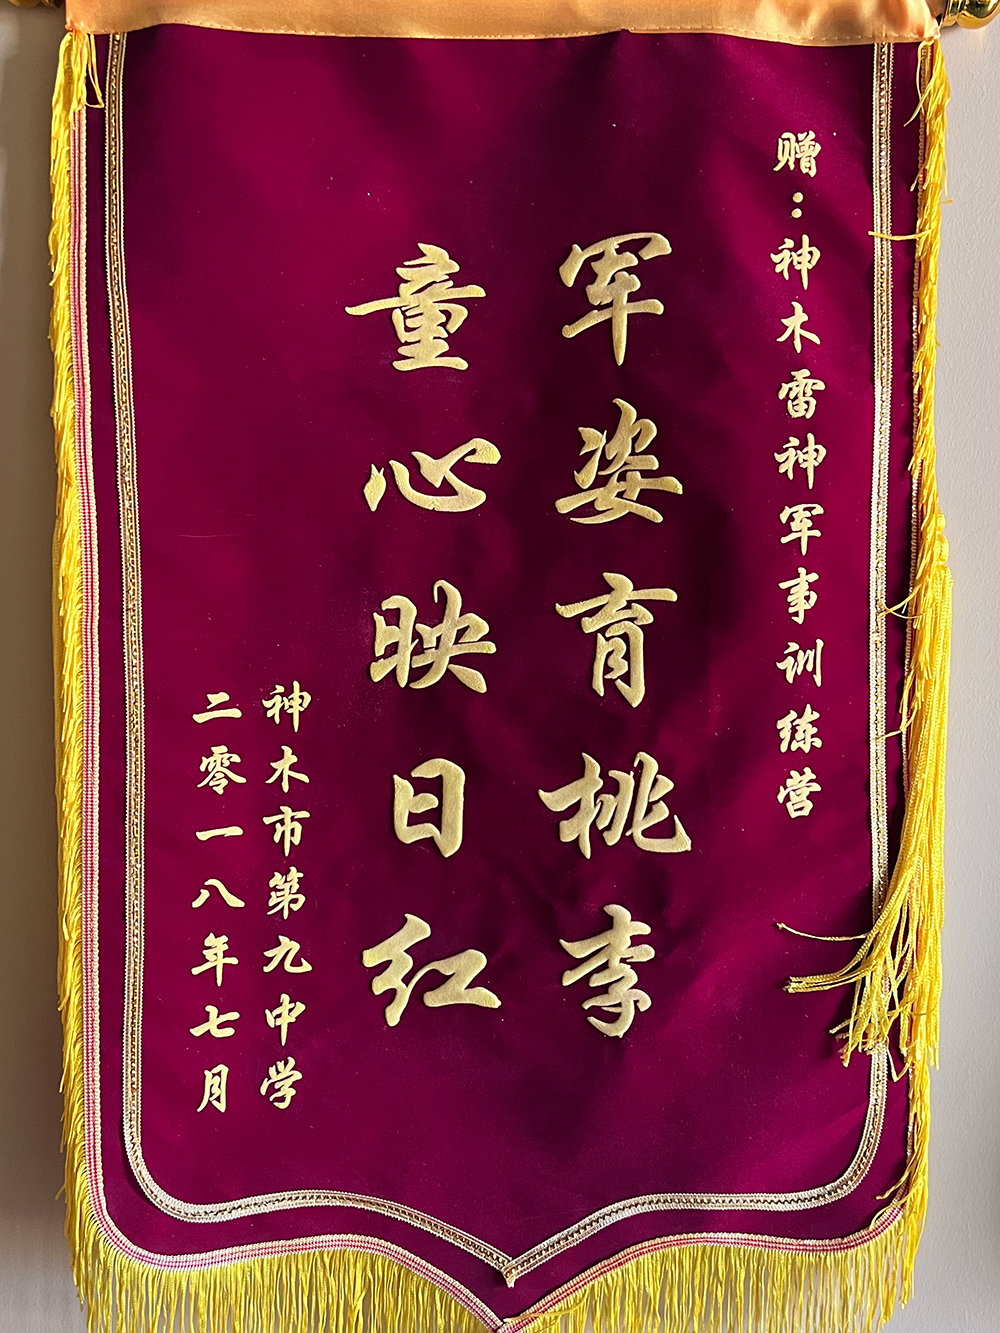 赠：神木雷神军事训练营
军姿育桃李
童心映日红
神木市第九中学
二零一八年七月